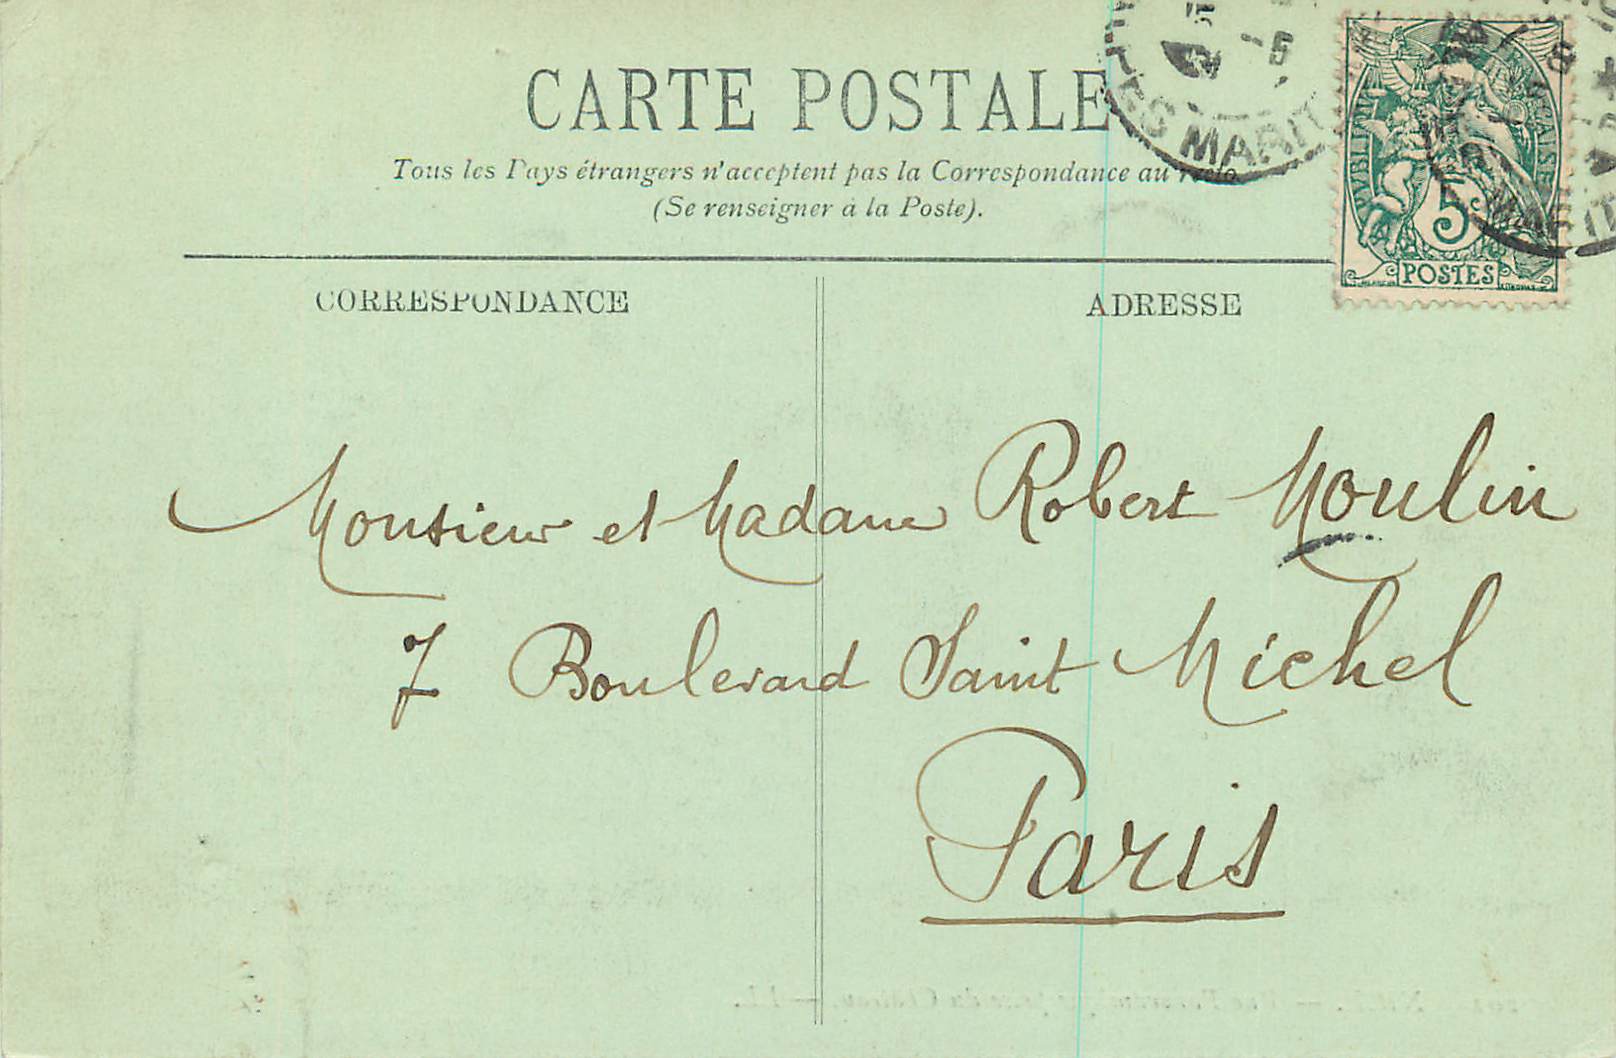 CARTE POSTALE
Tous les Pays étrangers n'acceptent pas la Correspondance au recto.
(Se renseigner à la Poste).
CORRESPONDANCE
ADRESSE
5c
POSTES
MARIT
Monsieur et Madame Robert Moulin
7 Boulevard Saint Michel
Paris